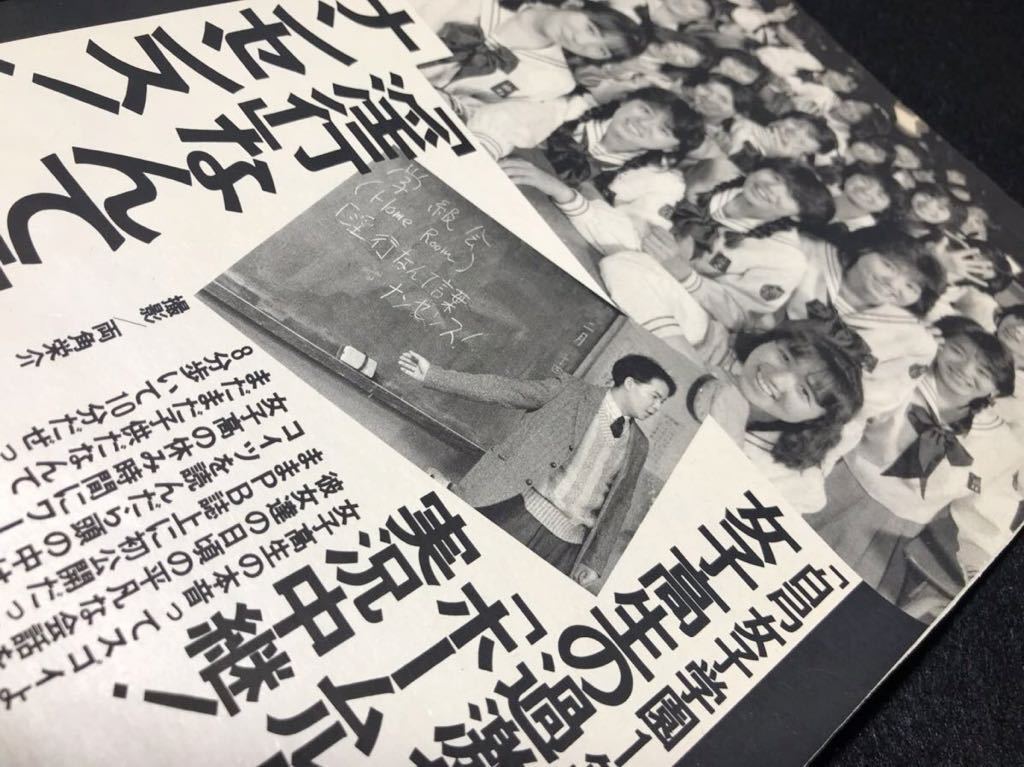 「淫行なんて
ナンセンス!
学級会
(Home Room)
「淫行なんて言葉
ナンセンス!
二月
「白鳥女子学園1年
女子高生の「過激
ホームル
実況中継!
女子高生の本音ってスゴイよ
彼女達の日頃の平凡な会話を
ままPB誌上に初公開だっ
コイツを読んだら頭の中
女子高の休み時間にワー
まだまだ子供だなんて
8分歩いて10分だぜっ
撮影/両角栄介